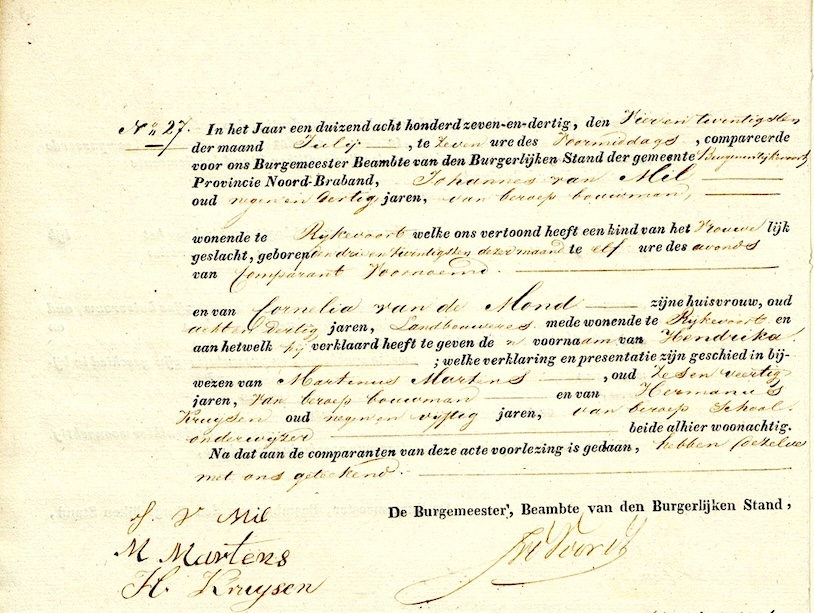 No 27. In het Jaar een duizend acht honderd zeven-en-dertig, den Vier en twentigsten
der maand Julij, te zeven ure des Voormiddags, compareerde
voor ons Burgemeester Beambte van den Burgerlijken Stand der gemeente
Provincie Noord-Braband, Johannes van Mil
oud negen en dertig jaren, van beroep bouwman,
wonende te Rijkevoort welke ons vertoond heeft een kind van het Vrouwe lijk
geslacht, geboren den drie en twentigsten dezer maand te elf ure des avonds
van Comparant Voornoemd.
en van Cornelia van de Mond zijne huisvrouw, oud
acht en dertig jaren, Landbouweres mede wonende te Rijkevoort en
aan hetwelk hij verklaard heeft te geven de n voornaam van Hendrika.
; welke verklaring en presentatie zijn geschied in bij-
wezen van Martinus Martens, oud Zes en veertig
jaren, van beroep bouwman en van Hermanus
Kruysen oud negen en vijftig jaren, van beroep School
onderwijzer beide alhier woonachtig.
Na dat aan de comparanten van deze acte voorlezing is gedaan, hebben dezelve
met ons geteekend.
De Burgemeester, Beambte van den Burgerlijken Stand,
J. V Mil
M Martens
H. Kruysen